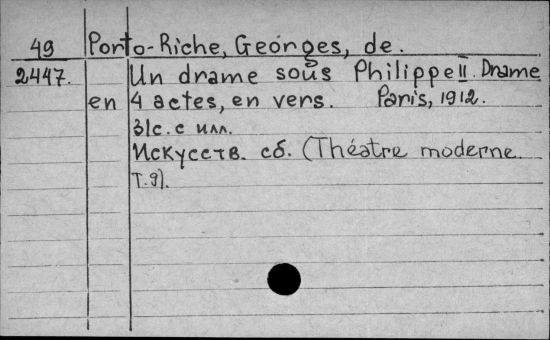 49 Porto-Riche, Georges, de.
2447. Un drame sous Philippe II. Drame
en 4 actes, en vers. Paris, 1912.
31с. с илл.
Искусств. сб. (Théatre moderne.
T.9).